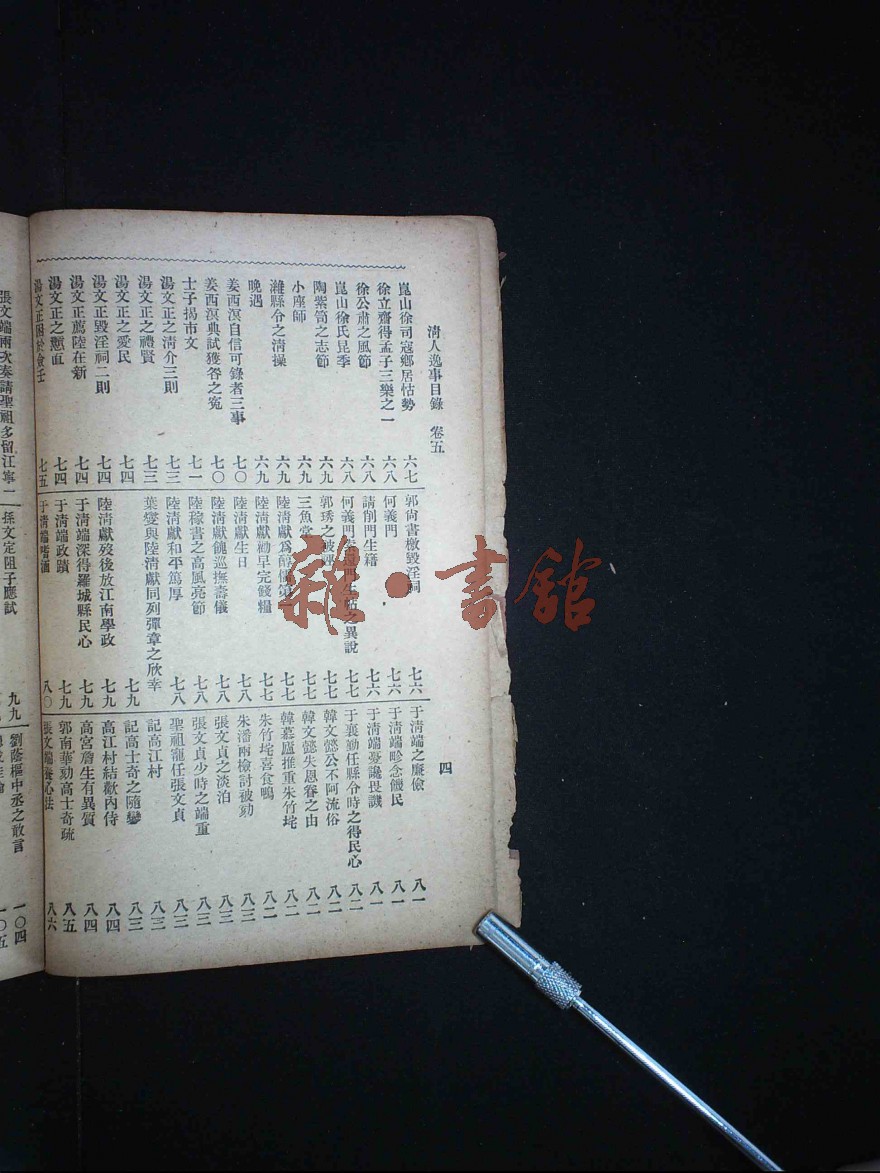 清人逸事目錄 卷五
四
崑山徐司寇鄉居怙勢 六七
徐立齋得孟子三樂之一 六八
徐公肅之風節 六八
崑山徐氏昆季 六八
陶紫笥之志節 六九
小座師 六九
濰縣令之清操 六九
晚遇 七〇
姜西溟自信可錄者三事 七〇
姜西溟典試獲咎之冤 七〇
士子揭市文 七一
湯文正之清介三則 七三
湯文正之禮賢 七三
湯文正之愛民 七四
湯文正毀淫祠二則 七四
湯文正薦陸在新 七四
湯文正之戇直 七四
湯文正 七五
郭尙書檄毀淫祠 七六
何義門 七六
請削門生籍 七六
何義門 門生帖之異說 七七
郭琇之被 七七
三魚堂 七七
陸淸獻爲醇儒第一 七七
陸淸獻勸早完錢糧 七七
陸淸獻生日 七八
陸淸獻餽巡撫壽儀 七八
陸稼書之高風亮節 七八
陸淸獻和平篤厚 七八
葉燮與陸淸獻同列彈章之欣幸 七九
陸淸獻歿後放江南學政 七九
于淸端深得羅城縣民心 七九
于淸端政蹟 七九
于淸端嗜酒 八〇
于淸端之廉儉 八一
于淸端軫念饑民 八一
于淸端憂讒畏譏 八一
于襄勤任縣令時之得民心 八二
韓文懿公不阿流俗 八二
韓文懿失恩眷之由 八二
韓慕廬推重朱竹垞 八二
朱竹垞喜食鴨 八二
朱潘兩檢討被劾 八三
張文貞之淡泊 八三
張文貞少時之端重 八三
聖祖寵任張文貞 八三
記高江村 八三
記高士奇之隨鑾 八三
高江村結歡內侍 八四
高宮詹生有異質 八四
郭南華劾高士奇疏 八五
張文端養心法 八六
張文端兩次奏請聖祖多留江寧二
孫文定阻子應試 九九
劉蔭樞中丞之敢言 一〇四
一〇五
雜·書館